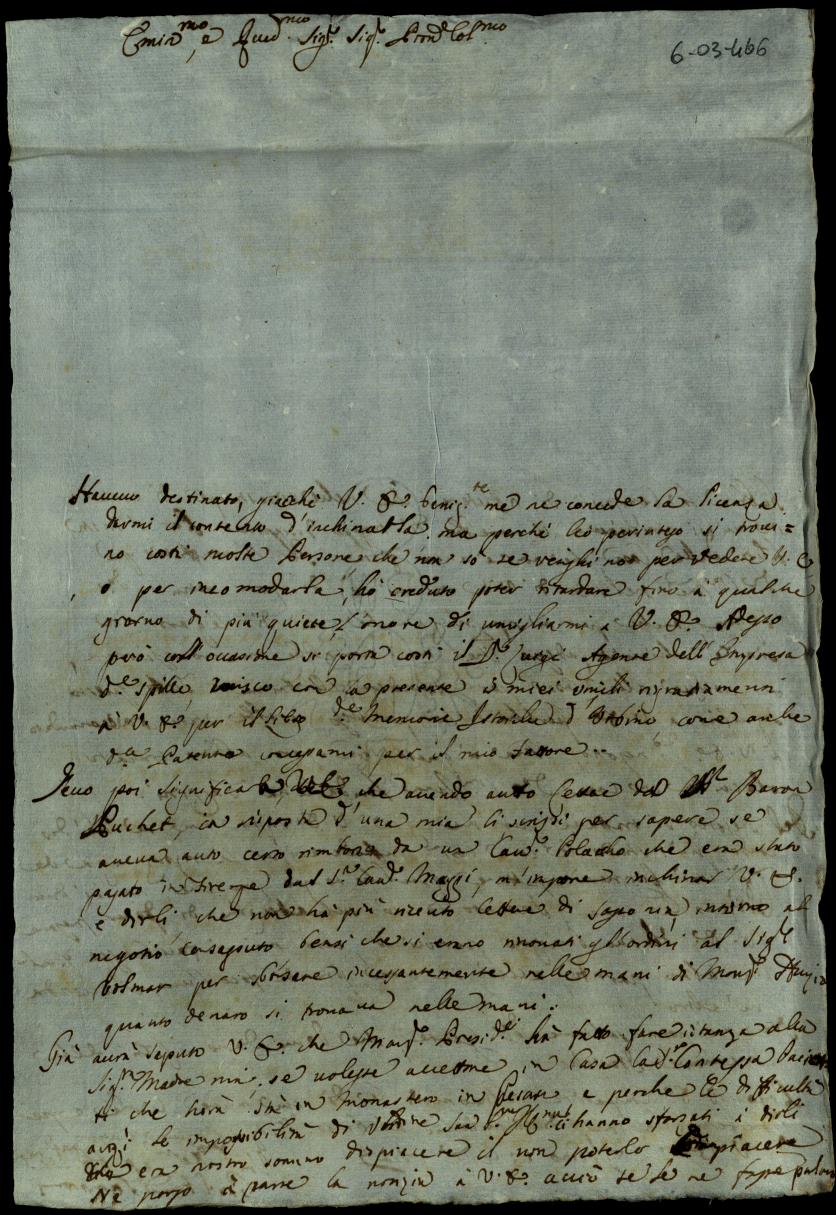 6-03-466
Emin.mo, e Sig.r Sig.r Pron Col.mo
Havevo destinato, giachè V. E. benig.te me ne concede la licenza
darmi il contento d'inchinarla, ma perchè ho perinteso si trovi=
no costì molte Persone che non sò se venghino per vedere V. E.
o per incomodarla, hò creduto poter ritardare fino à qualche
giorno di più quiete l'onore di umigliarmi à V. E. Adesso
però coll'occasione si porta costì il D. Agente dell'Impresa
d.e spille, con la presente i miei umili ringratiamenti
à V. E. per il Libro d.e Memorie Istoriche d'Urbino, come anche
d.a Patente concessami per il mio Fattore.
Devo poi significarle, che avendo auto lettere dal Baron
Puchet, in risposta d'una mia li scrissi per sapere se
aveva auto certo rimborso da un Cav. Polacho che era stato
pajato in Firenze dal S. Cav. Maggi, m'impone inchinar V. E.
e dirli, che non hà più riceuto lettere di intorno al
negotio consaputo bensì che si erano rinovati gl'ordini al Sig.r
Volmar per sborsare incessantemente nelle mani di Mons.r
quanto denaro si trovava nelle mani.
Già avrà saputo V. E. che Mons. Presid.e hà fatto fare istanza alla
Sig.ra Madre mia, se volesse accettare in Casa la d. Contessa
ti che hora stà in Monastero in Pesaro e perche le difficultà
anzi le impossibilità di ci hanno sforzati à dirli
che era nostro sommo dispiacere il non poterlo compiacere
Ne porgo à parte la notizia à V. E. acciò se se ne